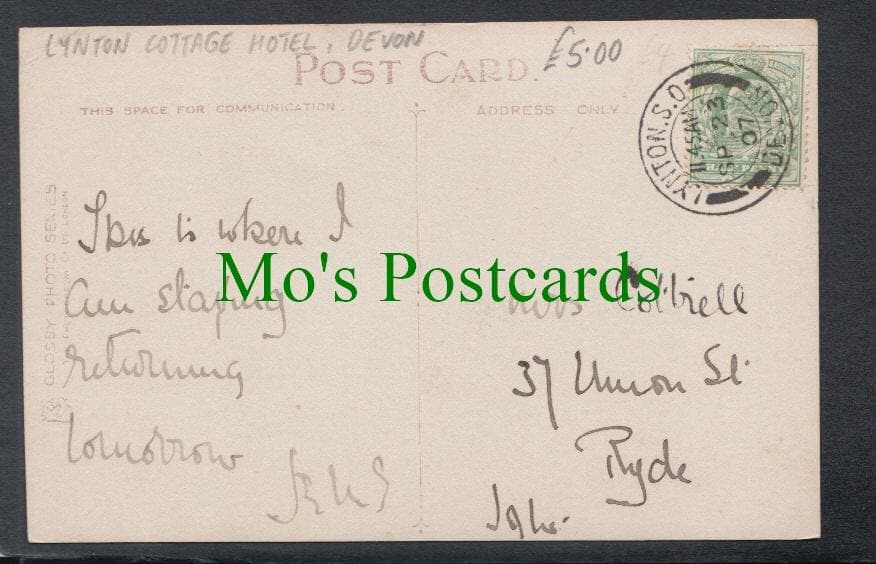 LYNTON COTTAGE HOTEL, DEVON
£5.00
POST CARD.
THIS SPACE FOR COMMUNICATION.
ADDRESS ONLY
LYNTON.S.O.
11.45AM
SP 23
07
DE
GLOSBY PHOTO SERIES
This is where I
am staying
returning
tomorrow
Mo's Postcards
Cottrell
37 Union St
Ryde